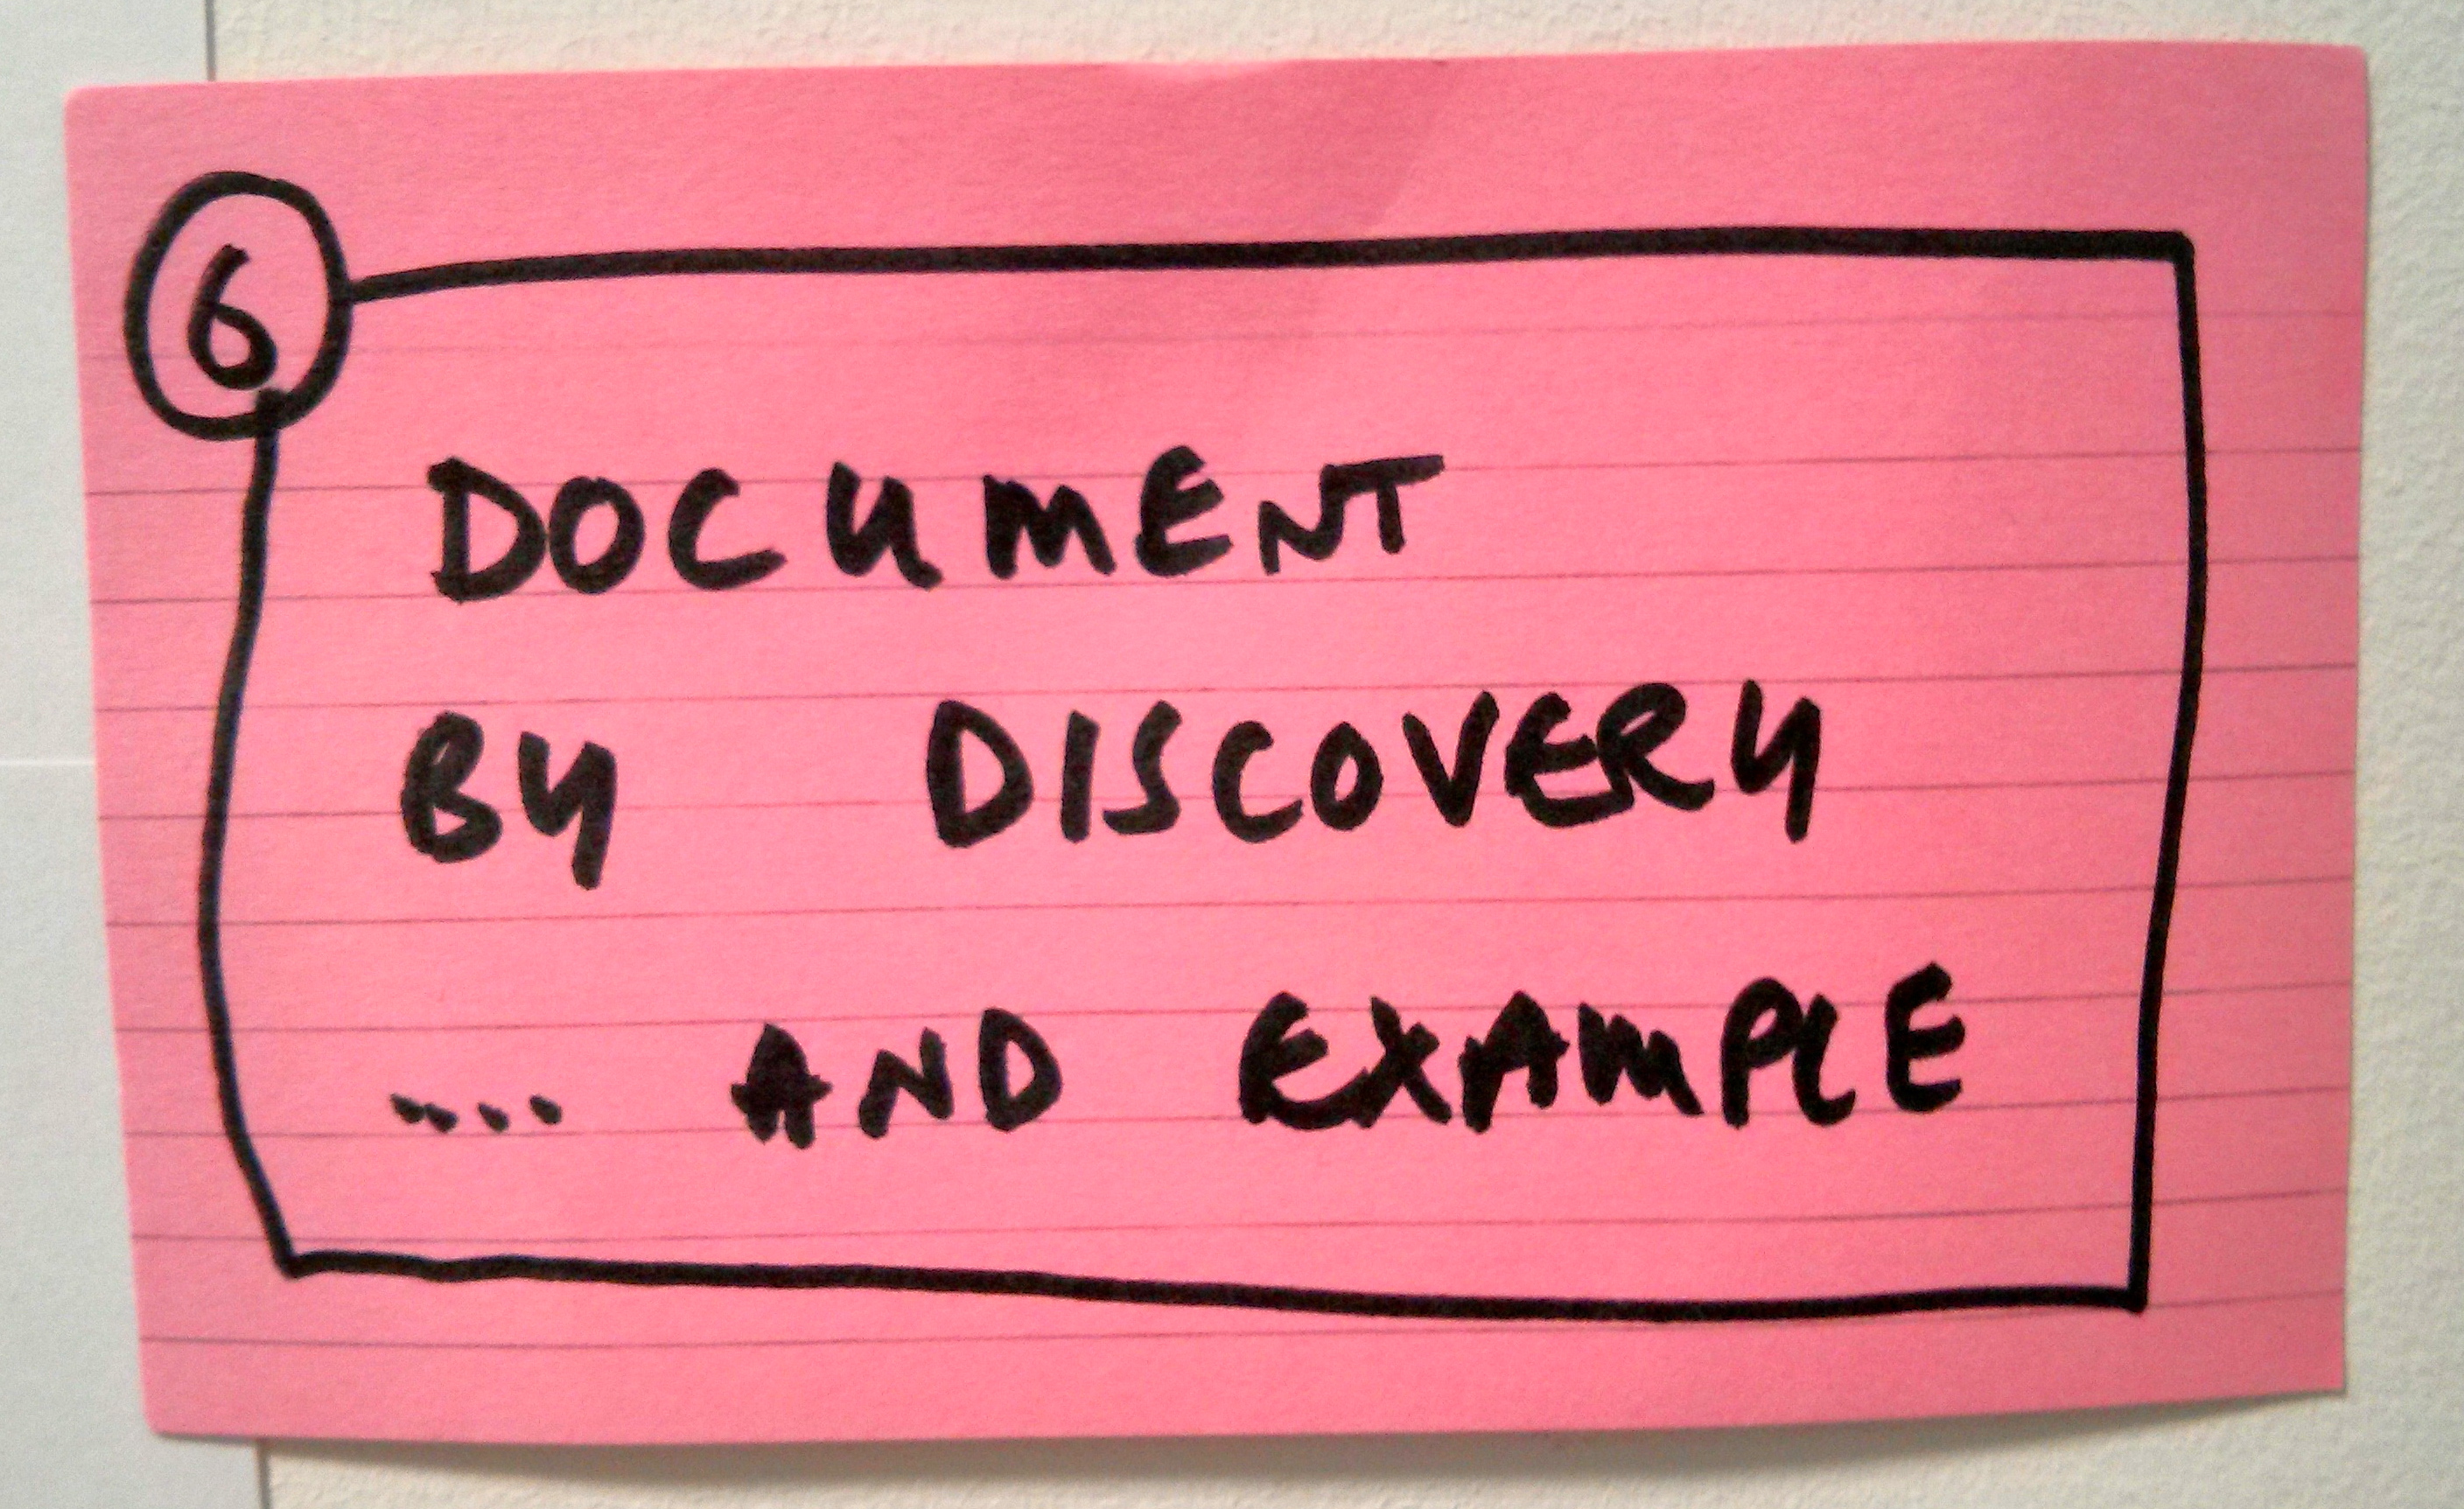 6
DOCUMENT
BY DISCOVERY
.... AND EXAMPLE